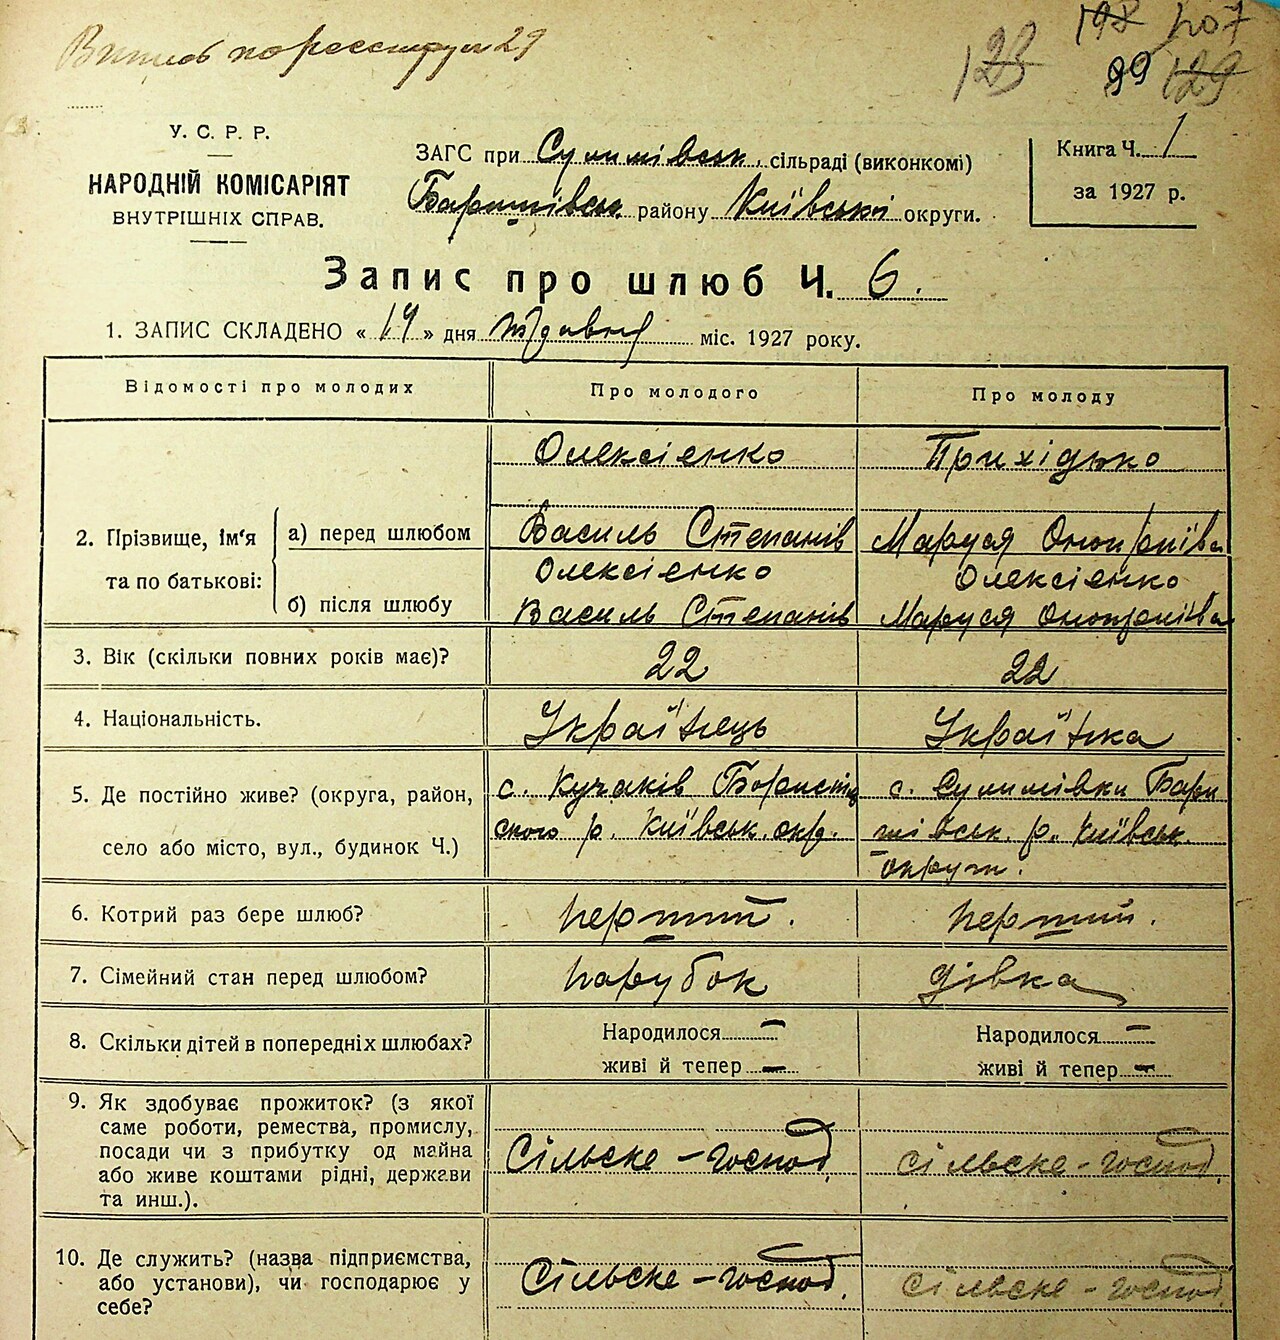 по реєстру 29
123 198 207
99 129
У. С. Р. Р.
НАРОДНІЙ КОМІСАРІЯТ
ВНУТРІШНІХ СПРАВ.
ЗАГС при Сулимівськ. сільраді (виконкомі)
Баришівськ району Київської округи.
Книга Ч. 1
за 1927 р.
Запис про шлюб Ч. 6.
1. ЗАПИС СКЛАДЕНО « 14 » дня міс. 1927 року.
Відомості про молодих
Про молодого
Про молоду
2. Прізвище, ім'я та по батькові:
а) перед шлюбом
Олексієнко
Василь Степанів
Прихідько
Маруся Онопріїва
б) після шлюбу
Олексієнко
Василь Степанів
Олексієнко
Маруся Онопріїва
3. Вік (скільки повних років має)?
22
22
4. Національність.
Українець
Українка
5. Де постійно живе? (округа, район,
село або місто, вул., будинок Ч.)
с. Кучаків Бориспіл
ського р. Київськ. окр.
с. Сулимівки Бари
шівськ. р. Київськ.
округи.
6. Котрий раз бере шлюб?
перший.
перший.
7. Сімейний стан перед шлюбом?
парубок
дівка
8. Скільки дітей в попередніх шлюбах?
Народилося —
живі й тепер —
Народилося —
живі й тепер —
9. Як здобуває прожиток? (з якої
саме роботи, ремества, промислу,
посади чи з прибутку од майна
або живе коштами рідні, держави
та инш.).
Сільське-господ.
Сільське-господ.
10. Де служить? (назва підприємства,
або установи), чи господарює у
себе?
Сільське-господ.
Сільське-господ.